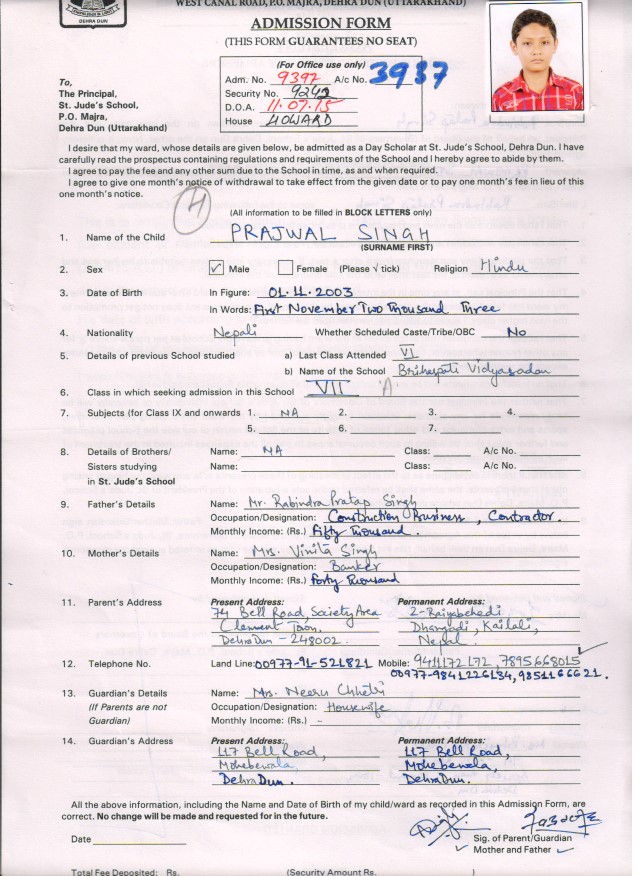 WEST CANAL ROAD, P.O. MAJRA, DEHRA DUN (UTTARAKHAND)
DEHRA DUN
ADMISSION FORM
(THIS FORM GUARANTEES NO SEAT)
(For Office use only)
Adm. No. 9397 A/c No. 3937
Security No. 9242
D.O.A. 11.07.15
House HOWARD
To,
The Principal,
St. Jude's School,
P.O. Majra,
Dehra Dun (Uttarakhand)
I desire that my ward, whose details are given below, be admitted as a Day Scholar at St. Jude's School, Dehra Dun. I have
carefully read the prospectus containing regulations and requirements of the School and I hereby agree to abide by them.
I agree to pay the fee and any other sum due to the School in time, as and when required.
I agree to give one month's notice of withdrawal to take effect from the given date or to pay one month's fee in lieu of this
one month's notice.
4
(All information to be filled in BLOCK LETTERS only)
1. Name of the Child PRAJWAL SINGH
(SURNAME FIRST)
2. Sex ✓ Male Female (Please √ tick) Religion Hindu
3. Date of Birth In Figure: 01.11.2003
In Words: First November Two Thousand Three
4. Nationality Nepali Whether Scheduled Caste/Tribe/OBC No
5. Details of previous School studied a) Last Class Attended VI
b) Name of the School Brihaspati Vidyasadan
6. Class in which seeking admission in this School VII 'A'
7. Subjects (for Class IX and onwards 1. NA 2. 3. 4.
5. 6. 7.
8. Details of Brothers/ Name: NA Class: A/c No.
Sisters studying Name: Class: A/c No.
in St. Jude's School
9. Father's Details Name: Mr. Rabindra Pratap Singh
Occupation/Designation: Construction Business, Contractor.
Monthly Income: (Rs.) Fifty Thousand.
10. Mother's Details Name: Mrs. Vinita Singh
Occupation/Designation: Banker
Monthly Income: (Rs.) Forty Thousand
11. Parent's Address Present Address: Permanent Address:
74 Bell Road, Society Area 2-Raijmbehedi
Clement Town, Dhangadi, Kailali,
DehraDun - 248002. Nepal
12. Telephone No. Land Line: 00977-91-521821 Mobile: 9411172172, 7895668015
00977-9841226134, 9851166621.
13. Guardian's Details Name: Mrs. Neeru Chhetri
(If Parents are not Occupation/Designation: Housewife
Guardian) Monthly Income: (Rs.) -
14. Guardian's Address Present Address: Permanent Address:
117 Bell Road, 117 Bell Road
Mohebewala, Mohebewala,
DehraDun. DehraDun.
All the above information, including the Name and Date of Birth of my child/ward as recorded in this Admission Form, are
correct. No change will be made and requested for in the future.
Date Sig. of Parent/Guardian
✓ Mother and Father ✓
Total Fee Deposited: Rs. (Security Amount Rs. )